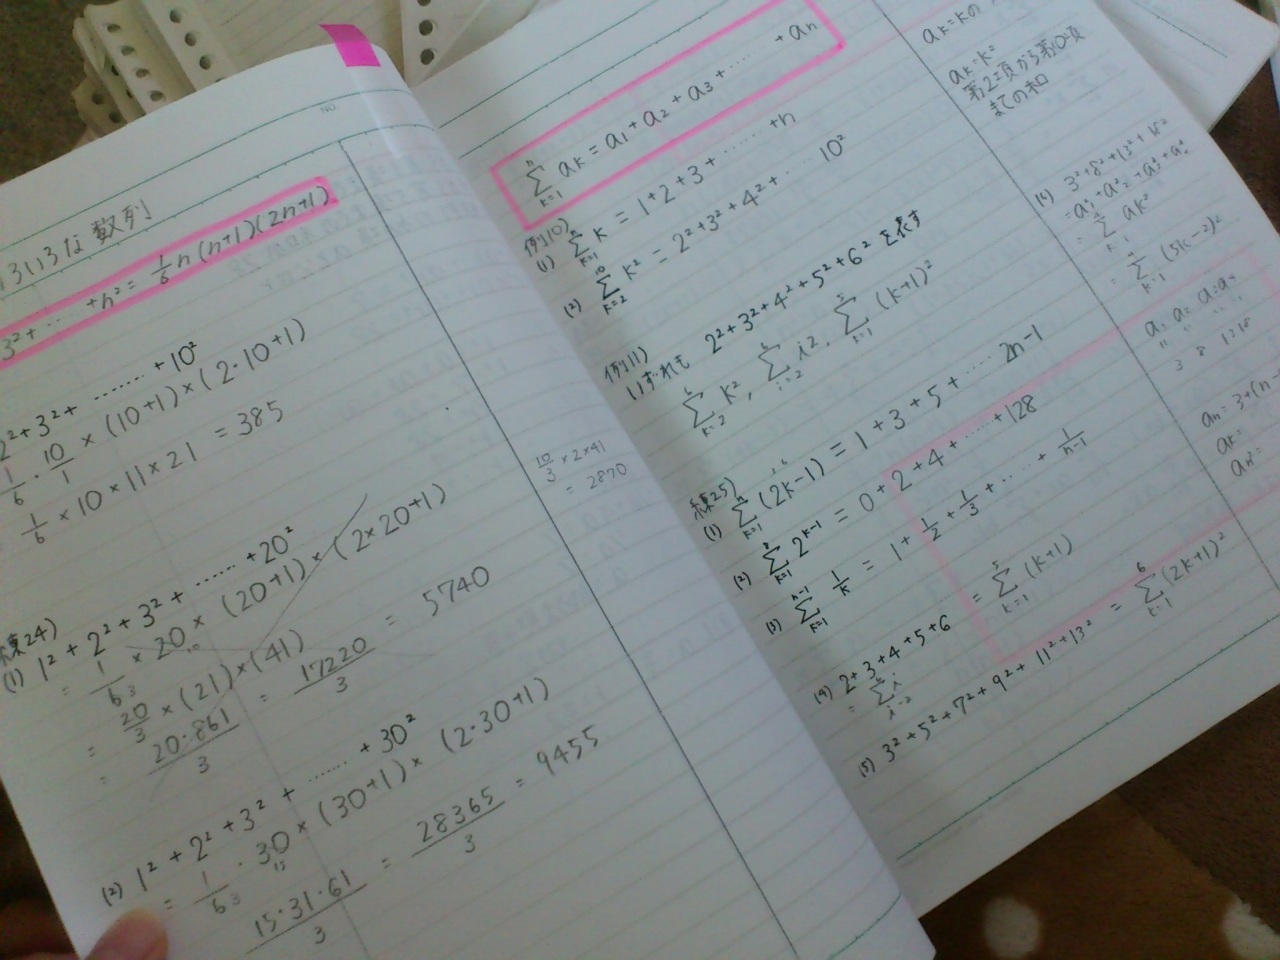 ろいろな数列
3²+ …… +n² = 1/6 n(n+1)(2n+1)
2²+3²+ …… +10²
1/6 · 10/1 × (10+1)×(2·10+1)
1/6 × 10×11×21 = 385
練24)
(1) 1²+2²+3²+ …… +20²
= 1/6 × 20 × (20+1) × (2×20+1)
3 10
= 20/3 × (21)×(41)
= 20·861/3 = 17220/3 = 5740
(2) 1²+2²+3²+ …… +30²
= 1/6 · 30 × (30+1) × (2·30+1)
3 15
15·31·61/3 = 28365/3 = 9455
10/3 × 2×41
= 2870
NO.
∑[k=1→n] aₖ = a₁+a₂+a₃+ …… +aₙ
例10)
(1) ∑[k=1→n] k = 1+2+3+ …… +n
(2) ∑[k=2→10] k² = 2²+3²+4²+ … 10²
例11)
いずれも 2²+3²+4²+5²+6² を表す
∑[k=2→6] k², ∑[i=2→6] i², ∑[k=1→5] (k+1)²
練25)
(1) ∑[k=1→n] (2k-1) = 1+3+5+ … 2n-1
(2) ∑[k=1→8] 2^(k-1) = 0+2+4+ … +128
(3) ∑[k=1→n-1] 1/k = 1+1/2+1/3+ … +1/(n-1)
(4) 2+3+4+5+6 = ∑[k=1→5] (k+1)
= ∑[i=2→6] i
(5) 3²+5²+7²+9²+11²+13² = ∑[k=1→6] (2k+1)²
aₖ=kの
aₖ=k²
第2項から第10項
までの和
3²+8²+13²+18²
= a₁²+a₂²+a₃²+a₄²
= ∑ aₖ²
= ∑[k=1→4] (5k-2)²
a₁ a₂ a₃ a₄
3 8 13 18
aₙ=3+(n-
aₖ=